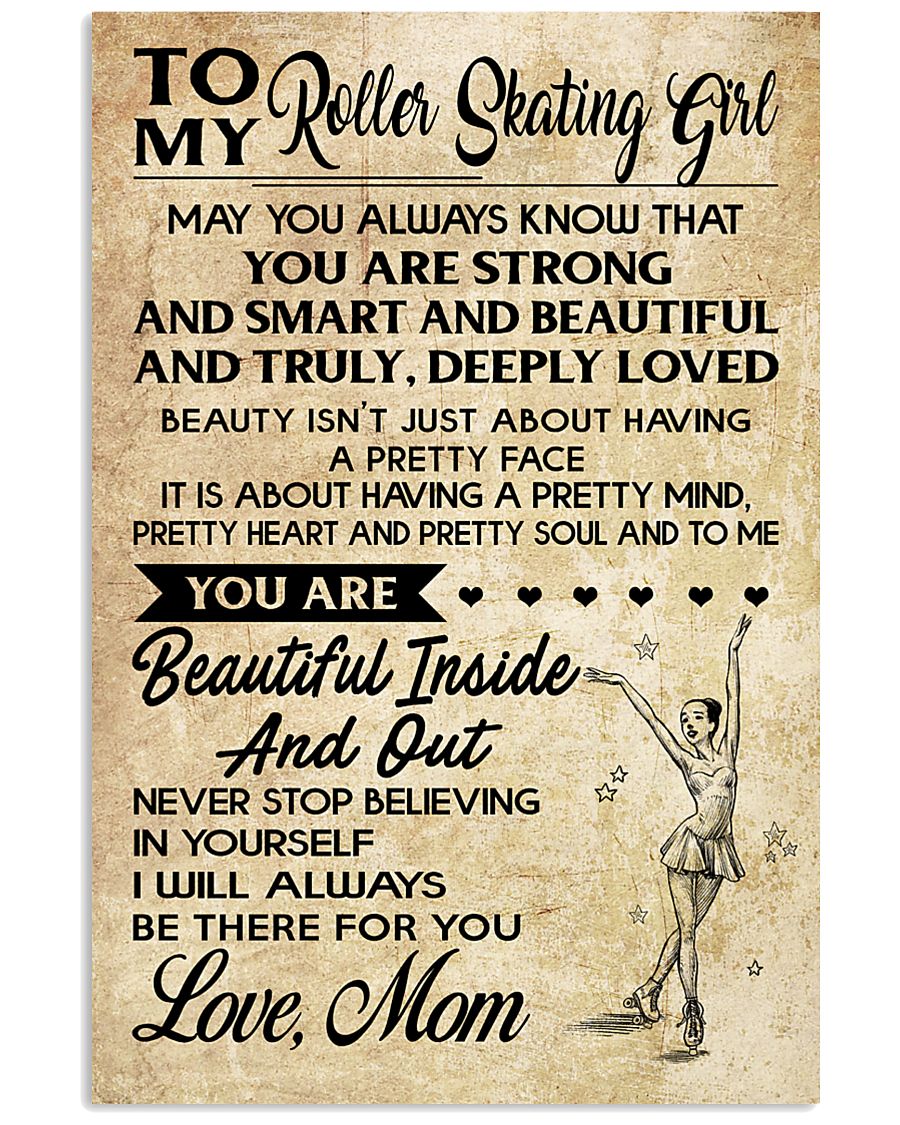 TO MY Roller Skating Girl
MAY YOU ALWAYS KNOW THAT
YOU ARE STRONG
AND SMART AND BEAUTIFUL
AND TRULY, DEEPLY LOVED
BEAUTY ISN'T JUST ABOUT HAVING
A PRETTY FACE
IT IS ABOUT HAVING A PRETTY MIND,
PRETTY HEART AND PRETTY SOUL AND TO ME
YOU ARE
Beautiful Inside
And Out
NEVER STOP BELIEVING
IN YOURSELF
I WILL ALWAYS
BE THERE FOR YOU
Love, Mom